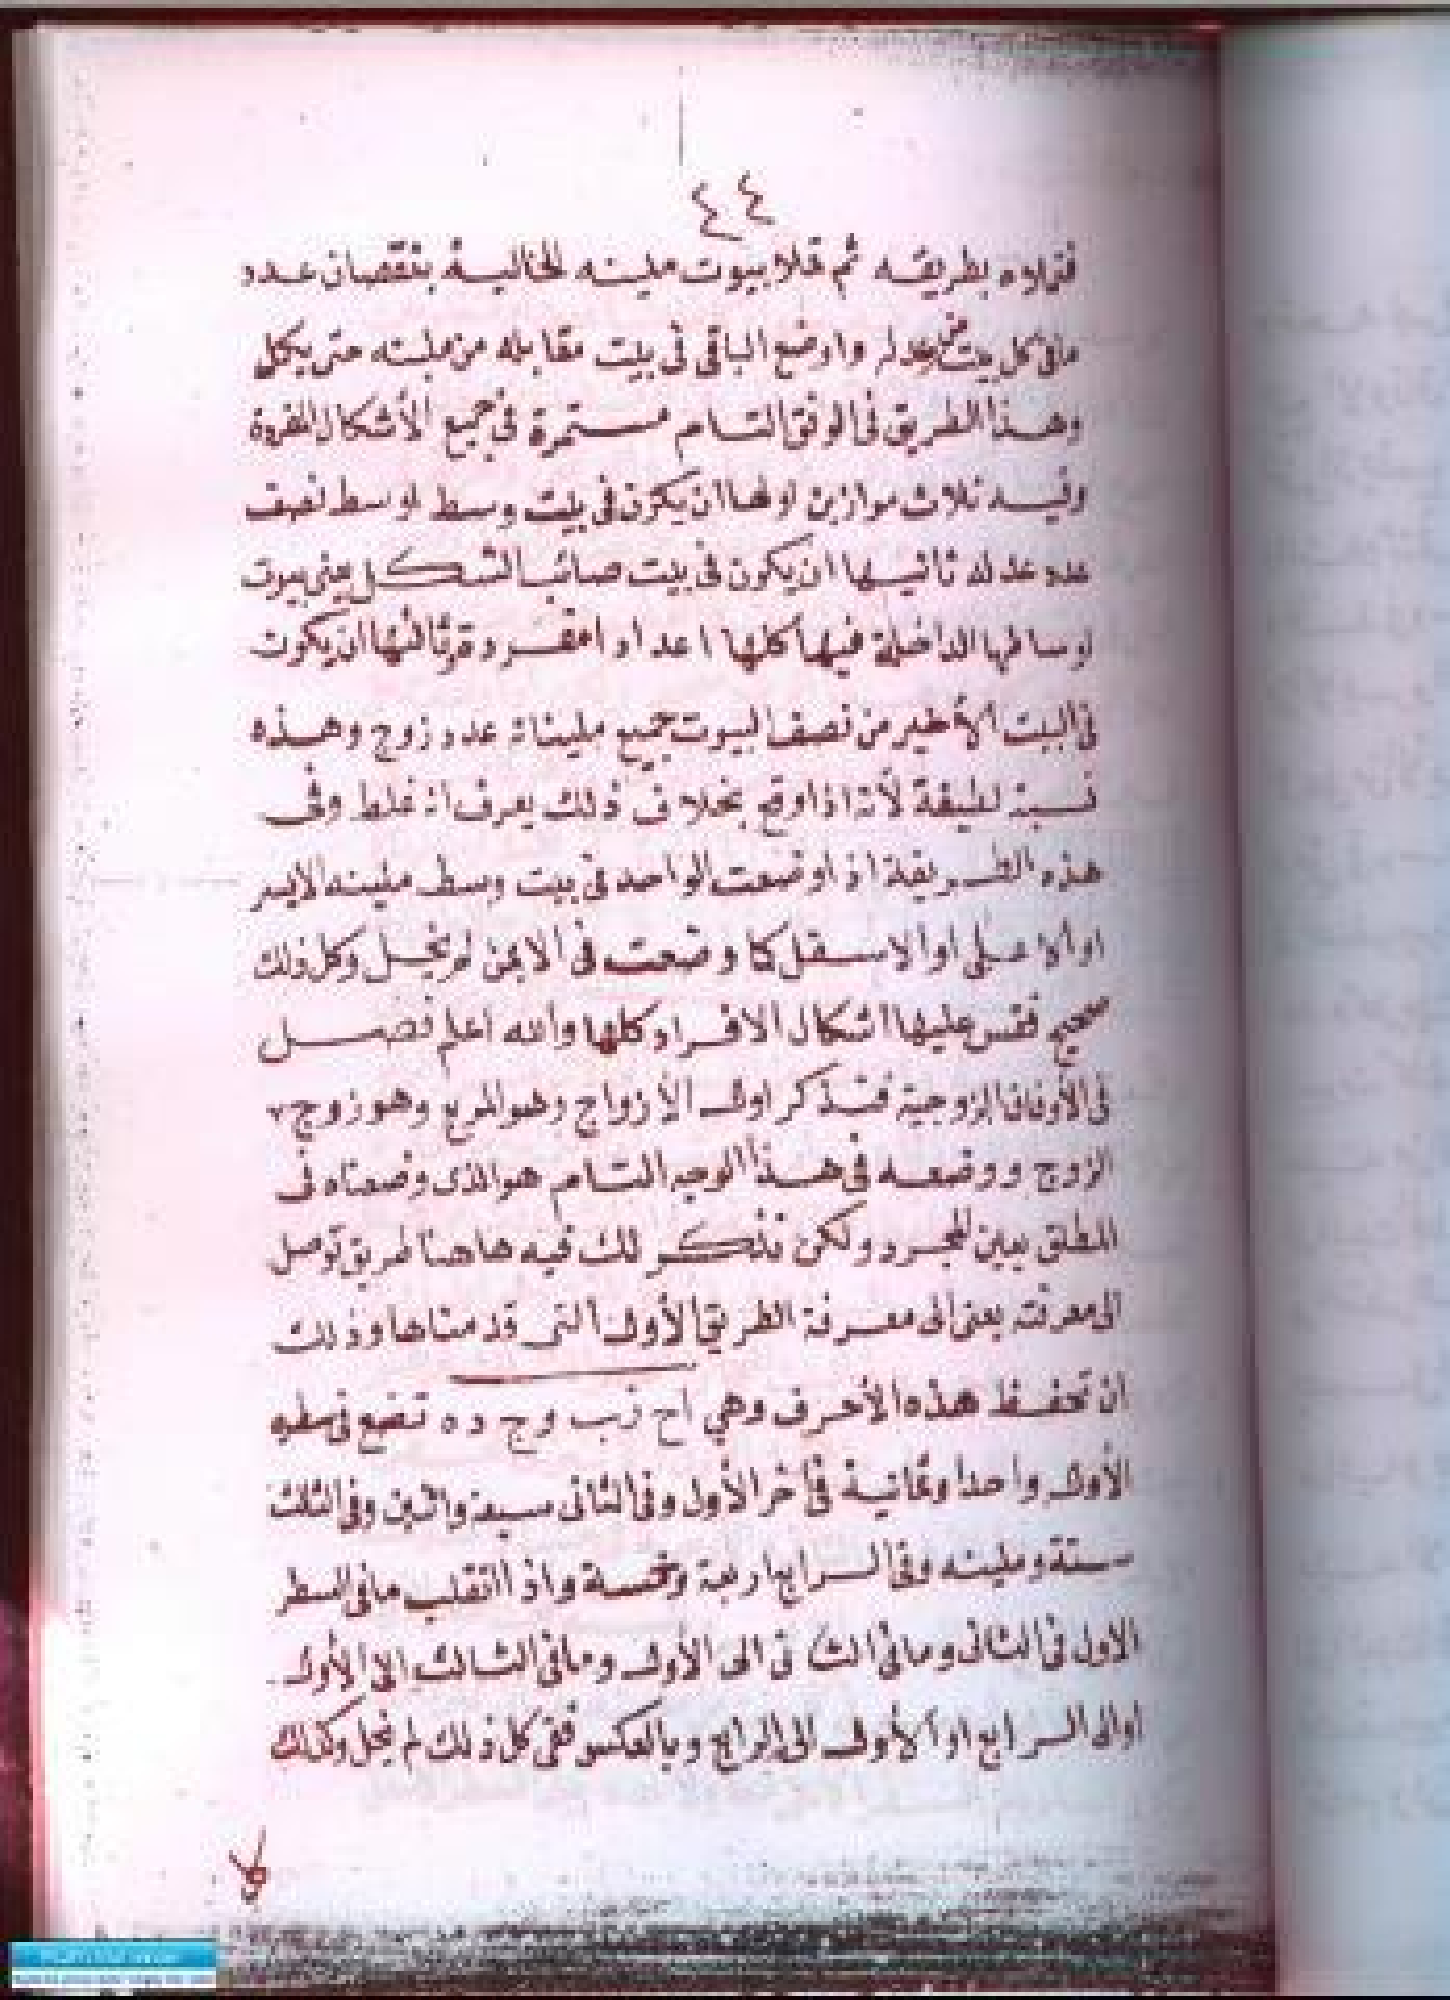 ٤٤
فتملاه بطريقه ثم تملا بيوت ملينه الخالية بنقصان عدد
ما في كل بيت من عدله واوضع الباقي في بيت مقابله من ملبنه حتى يكمل
وهذا الطريق في الوفق التام مستمرة في جميع الأشكال المفردة
وفيه ثلاث موازين اولها ان يكون في بيت وسط اوسط نصف
عدد عدله ثانيها ان يكون في بيت صائب الشكل يعني بيوت
اوساطها الداخلة فيها كلها اعداد مفردة وثالثها ان يكون
في البيت الأخير من نصف البيوت جميع مليناته عدد زوج وهذه
نسبة لطيفة لأنه اذا وقع بخلاف ذلك يعرف انه غلط وفي
هذه الطريقة اذا وضعت الواحد في بيت وسط ملينه الايسر
او الاعلى او الاسفل كما وضعت في الايمن لم يخل وكل ذلك
صحيح فقس عليها اشكال الافراد كلها والله اعلم فصل
في الأوفاق الزوجية فنذكر اول الأزواج وهو المربع وهو زوج
الزوج ووضعه في هذا الوجه التام هو الذي وضعناه في
المطلق بعين المجرد ولكن نذكر لك فيه هاهنا طريق توصل
الى معرفته يعني الى معرفة الطريق الأول التي قدمناها وذلك
ان تحفظ هذه الأحرف وهي اح زب وج ده تضع في سطره
الأول واحدا وثمانية في آخر الأول وفي الثاني سبعة واثنين وفي الثلث
ستة وملينه وفي الرابع اربعة وخمسة واذا انقلب ما في السطر
الاول في الثاني وما في الثاني الى الأول وما في الثالث الى الأول
او الى الرابع او الأول الى الرابع وبالعكس ففي كل ذلك لم يخل وكذلك